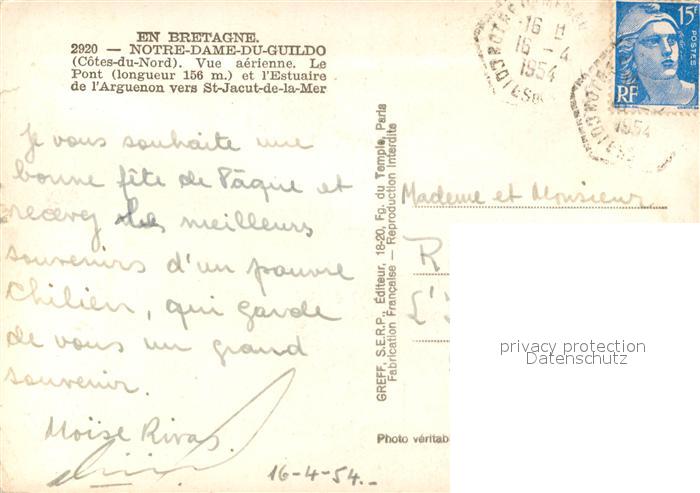 EN BRETAGNE.
2920 — NOTRE-DAME-DU-GUILDO
(Côtes-du-Nord). Vue aérienne. Le
Pont (longueur 156 m.) et l'Estuaire
de l'Arguenon vers St-Jacut-de-la-Mer
Je vous souhaite une
bonne fête de Pâque et
recevez les meilleurs
souvenirs d'un pauvre
chilien, qui garde
de vous un grand
souvenir.
Moïse Rivas
16-4-54.-
GREFF, S.E.R.P., Éditeur, 18-20, Fg. du Temple, Paris
Fabrication Française — Reproduction Interdite
Photo véritab
16 H
16 - 4
1954
15F
POSTES
RF
1954
Madame et Monsieur
R
L'
privacy protection
Datenschutz